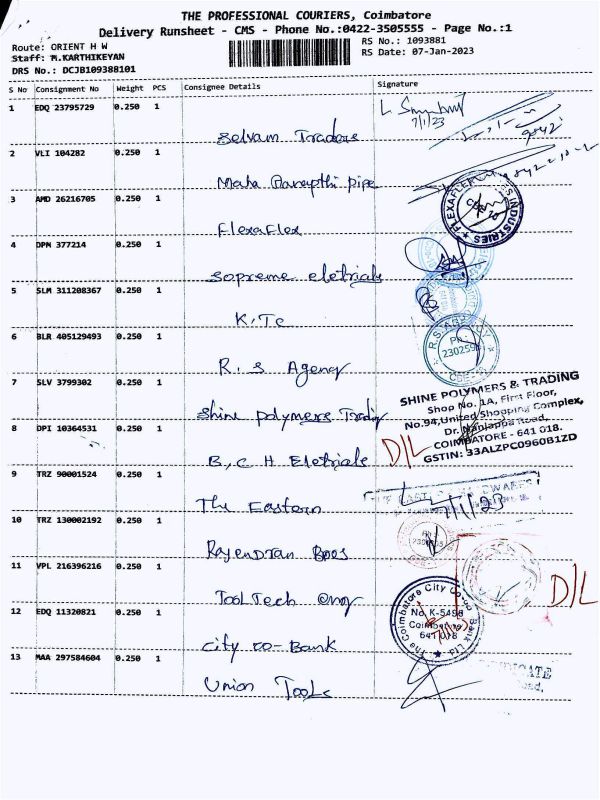 THE PROFESSIONAL COURIERS, Coimbatore
Delivery Runsheet - CMS - Phone No.:0422-3505555 - Page No.:1
Route: ORIENT H W
Staff: M.KARTHIKEYAN
DRS No.: DCJB109388101
RS No.: 1093881
RS Date: 07-Jan-2023
S No Consignment No Weight PCS Consignee Details Signature
1 EDQ 23795729 0.250 1
7/1/23
Selvam Traders
2 VLI 104282 0.250 1
Maha pipe
3 AMD 26216705 0.250 1
FLEXAFLEX INDUSTRIES
Flexaflex
4 DPN 377214 0.250 1
Sopreme eletrials
5 SLM 311208367 0.250 1
K.Tc
6 BLR 405129493 0.250 1
R.S. AGENCY
PH
230259
CBE-18
R. S Agency
7 SLV 3799302 0.250 1
SHINE POLYMERS & TRADING
Shop No. 1A, First Floor,
No.94,United Shopping Complex,
Dr. Nanjappa Road,
COIMBATORE - 641 018.
GSTIN: 33ALZPC0960B1ZD
Shine polymers Trading
8 DPI 10364531 0.250 1
D/L
B, C H Eletrials
9 TRZ 90001524 0.250 1
7/1/23
The Eastern
10 TRZ 130002192 0.250 1
Rajendran Boos
11 VPL 216396216 0.250 1
D/L
ToolTech eng
12 EDQ 11320821 0.250 1
The Coimbatore City Co-op Bank Ltd.
No. K-5498
Coimbatore
641 018
City co-Bank
13 MAA 297584604 0.250 1
Union Tools